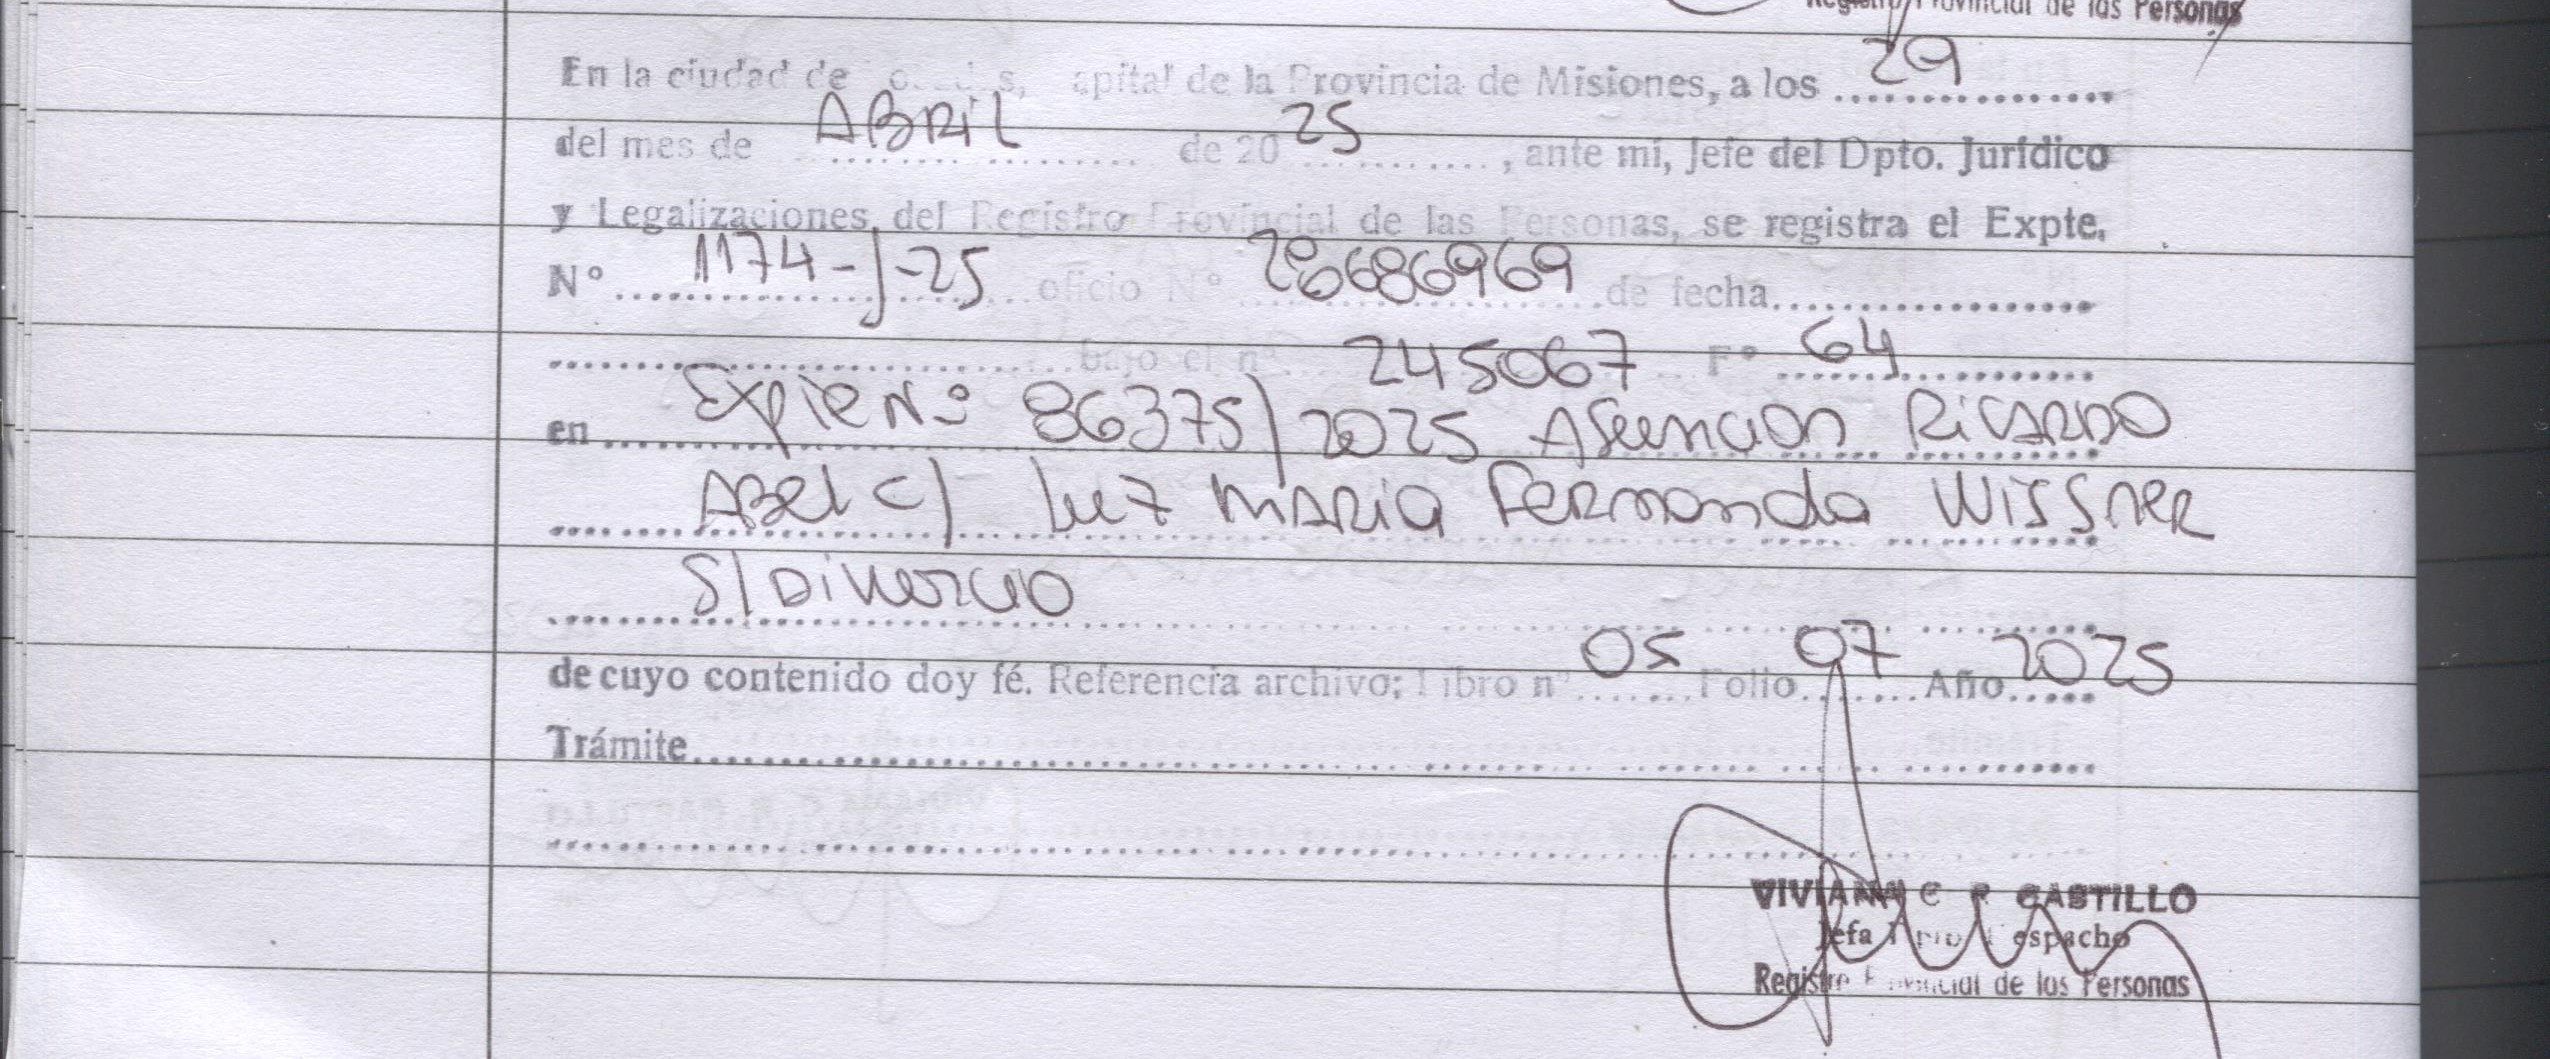 Registro Provincial de las Personas
En la ciudad de capital de la Provincia de Misiones, a los 29
del mes de ABRIL de 20 25, ante mí, Jefe del Dpto. Jurídico
y Legalizaciones, del Registro Provincial de las Personas, se registra el Expte.
N° 1174-J-25 oficio N° 28686969 de fecha
bajo el n° 245067 F° 64
en Expte N° 86375/2025 Asuncion RiCARDO
Abel c/ Luz MARiA Fernanda WiSSNER
S/Divorcio
de cuyo contenido doy fé. Referencia archivo; Libro n° 05 Folio 07 Año 2025
Trámite
VIVIANA C R CASTILLO
Jefa Dpto Despacho
Registro Provincial de las Personas